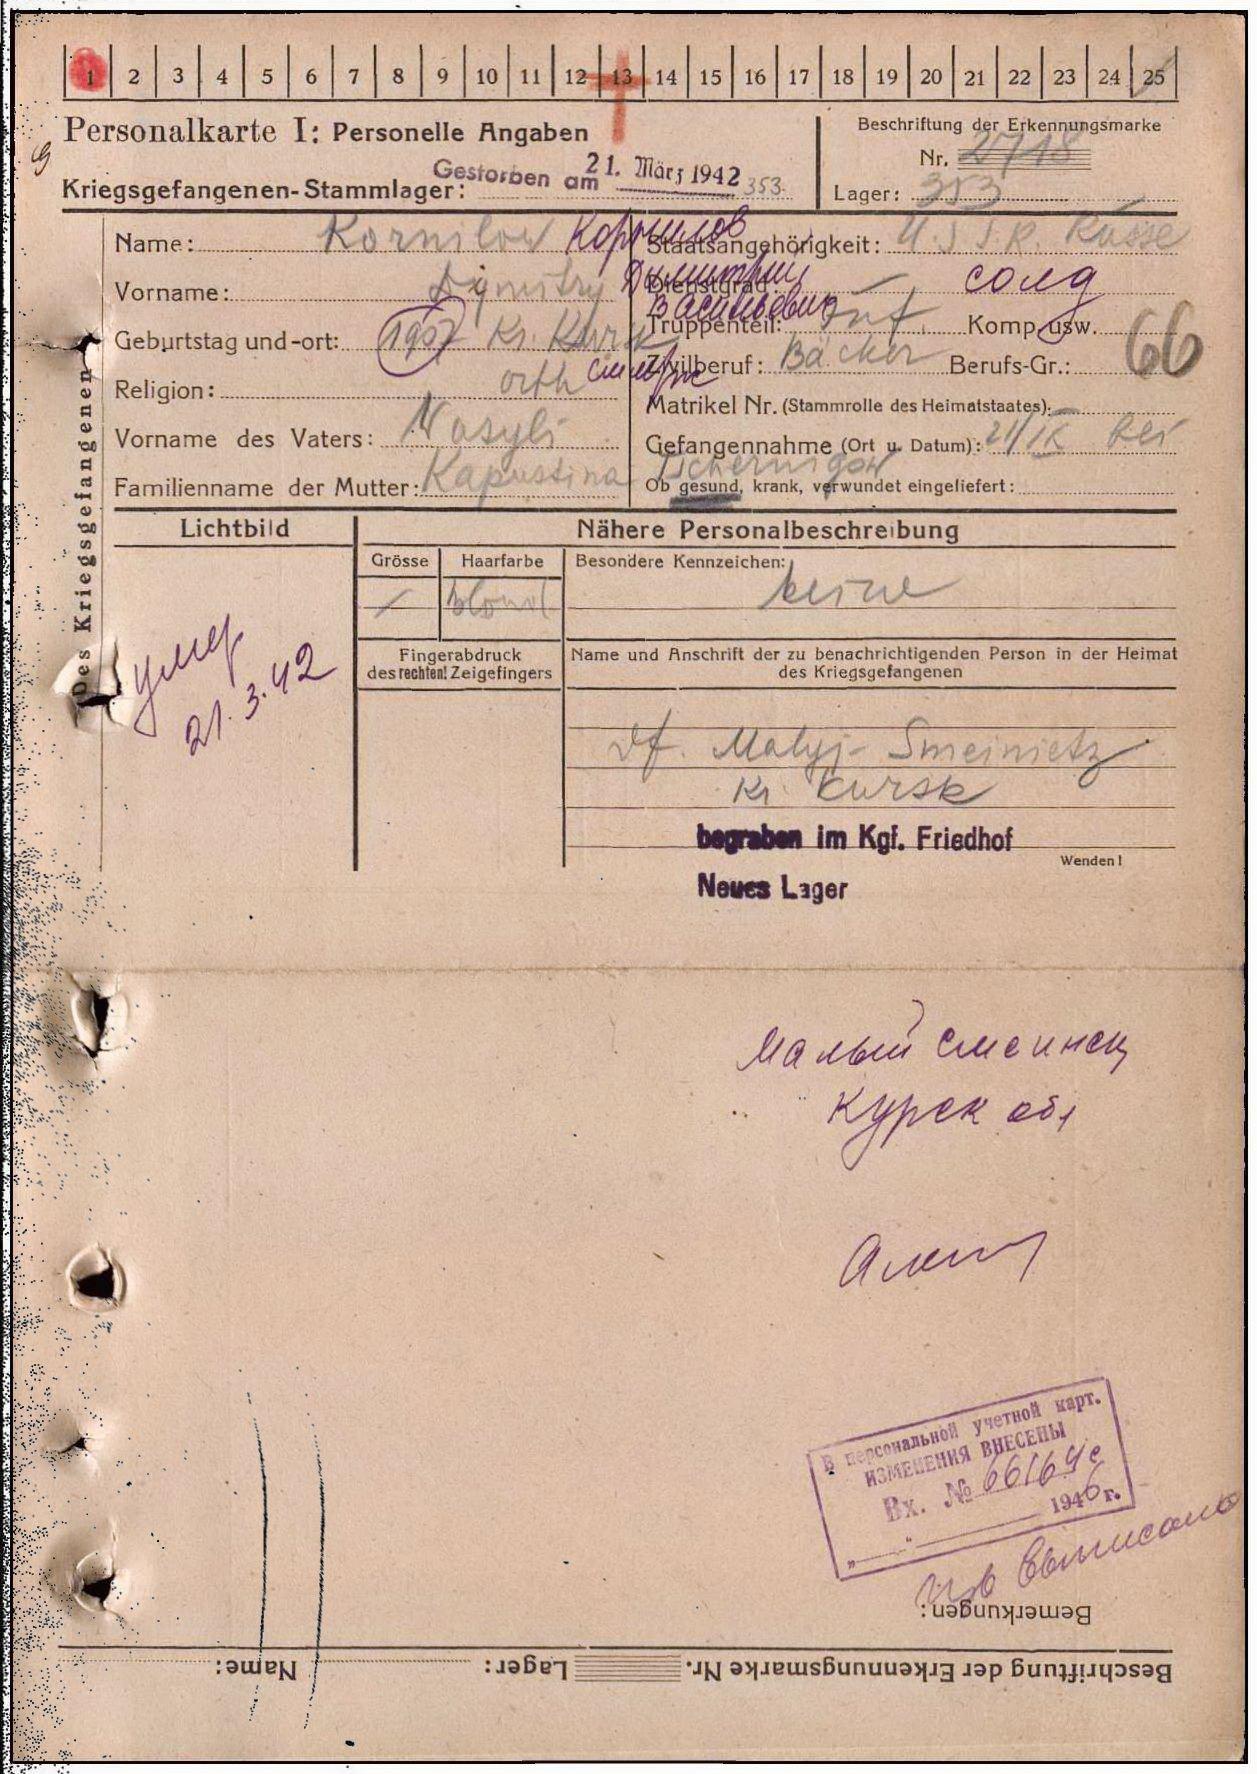 1 2 3 4 5 6 7 8 9 10 11 12 13 14 15 16 17 18 19 20 21 22 23 24 25
Personalkarte I: Personelle Angaben
Beschriftung der Erkennungsmarke
Nr. 2718
Gestorben am 21. März 1942 353.
Kriegsgefangenen-Stammlager:
Lager: 353
Name: Kornilow Корнилов
Staatsangehörigkeit: U.S.S.R. Russe
Vorname: Dymitry Дмитрий
Dienstgrad: — солд
Васильевич
Geburtstag und -ort: 1907 Kr. Kursk
Truppenteil: Inf. Komp. usw.
66
Religion: orth
Zivilberuf: Bäcker Berufs-Gr.:
Matrikel Nr. (Stammrolle des Heimatstaates):
Vorname des Vaters: Wasyli
Gefangennahme (Ort u. Datum): 21/IX bei
Tschernigow
Familienname der Mutter: Kapustina
Ob gesund, krank, verwundet eingeliefert:
Des Kriegsgefangenen
Lichtbild
Nähere Personalbeschreibung
Grösse Haarfarbe Besondere Kennzeichen:
blond keine
Fingerabdruck
des rechten! Zeigefingers
Name und Anschrift der zu benachrichtigenden Person in der Heimat
des Kriegsgefangenen
умер
21.3.42
Df. Malyj-Smeinietz
Kr. Kursk
begraben im Kgf. Friedhof
Wenden!
Neues Lager
Малый Смеинец
Курск обл
В персональной учетной карт.
ИЗМЕНЕНИЯ ВНЕСЕНЫ
Вх. № 66164с
" " 1946 г.
выписано
Bemerkungen:
Beschriftung der Erkennungsmarke Nr. Lager: Name: